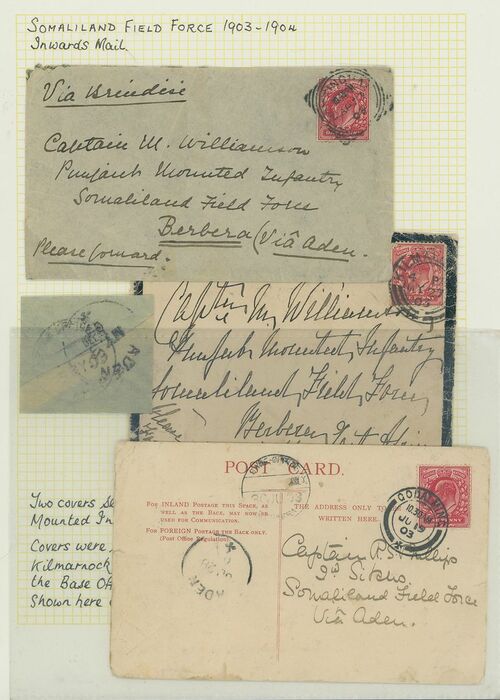 SOMALILAND FIELD FORCE 1903-1904
Inwards Mail.
Via Brindisi
Captain M. Williamson
Punjaub Mounted Infantry
Somaliland Field Force
Berbera (Viâ Aden.
Please forward.
Capt M. Williamson
Punjaub Mounted Infantry
Somaliland Field Force
Berbera
Please
ADEN
Two covers se
Mounted In
Covers were,
Kilmarnock
the Base Of
Shown here
POST CARD.
FOR INLAND POSTAGE THIS SPACE, AS
WELL AS THE BACK, MAY NOW BE
USED FOR COMMUNICATION.
FOR FOREIGN POSTAGE THE BACK ONLY.
(Post Office Regulation).
THE ADDRESS ONLY TO
WRITTEN HERE.
30 JU 03
GODALMING
10.30
JU 19
03
ADEN
Captain P.S. Phillips
Sikhs
Somaliland Field Force
Viâ Aden.